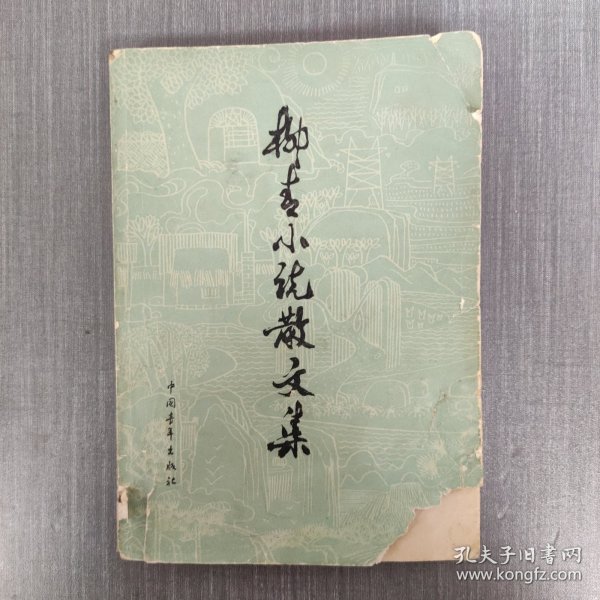 柳青小说散文集
中国青年出版社
孔夫子旧书网
www.kongfz.com